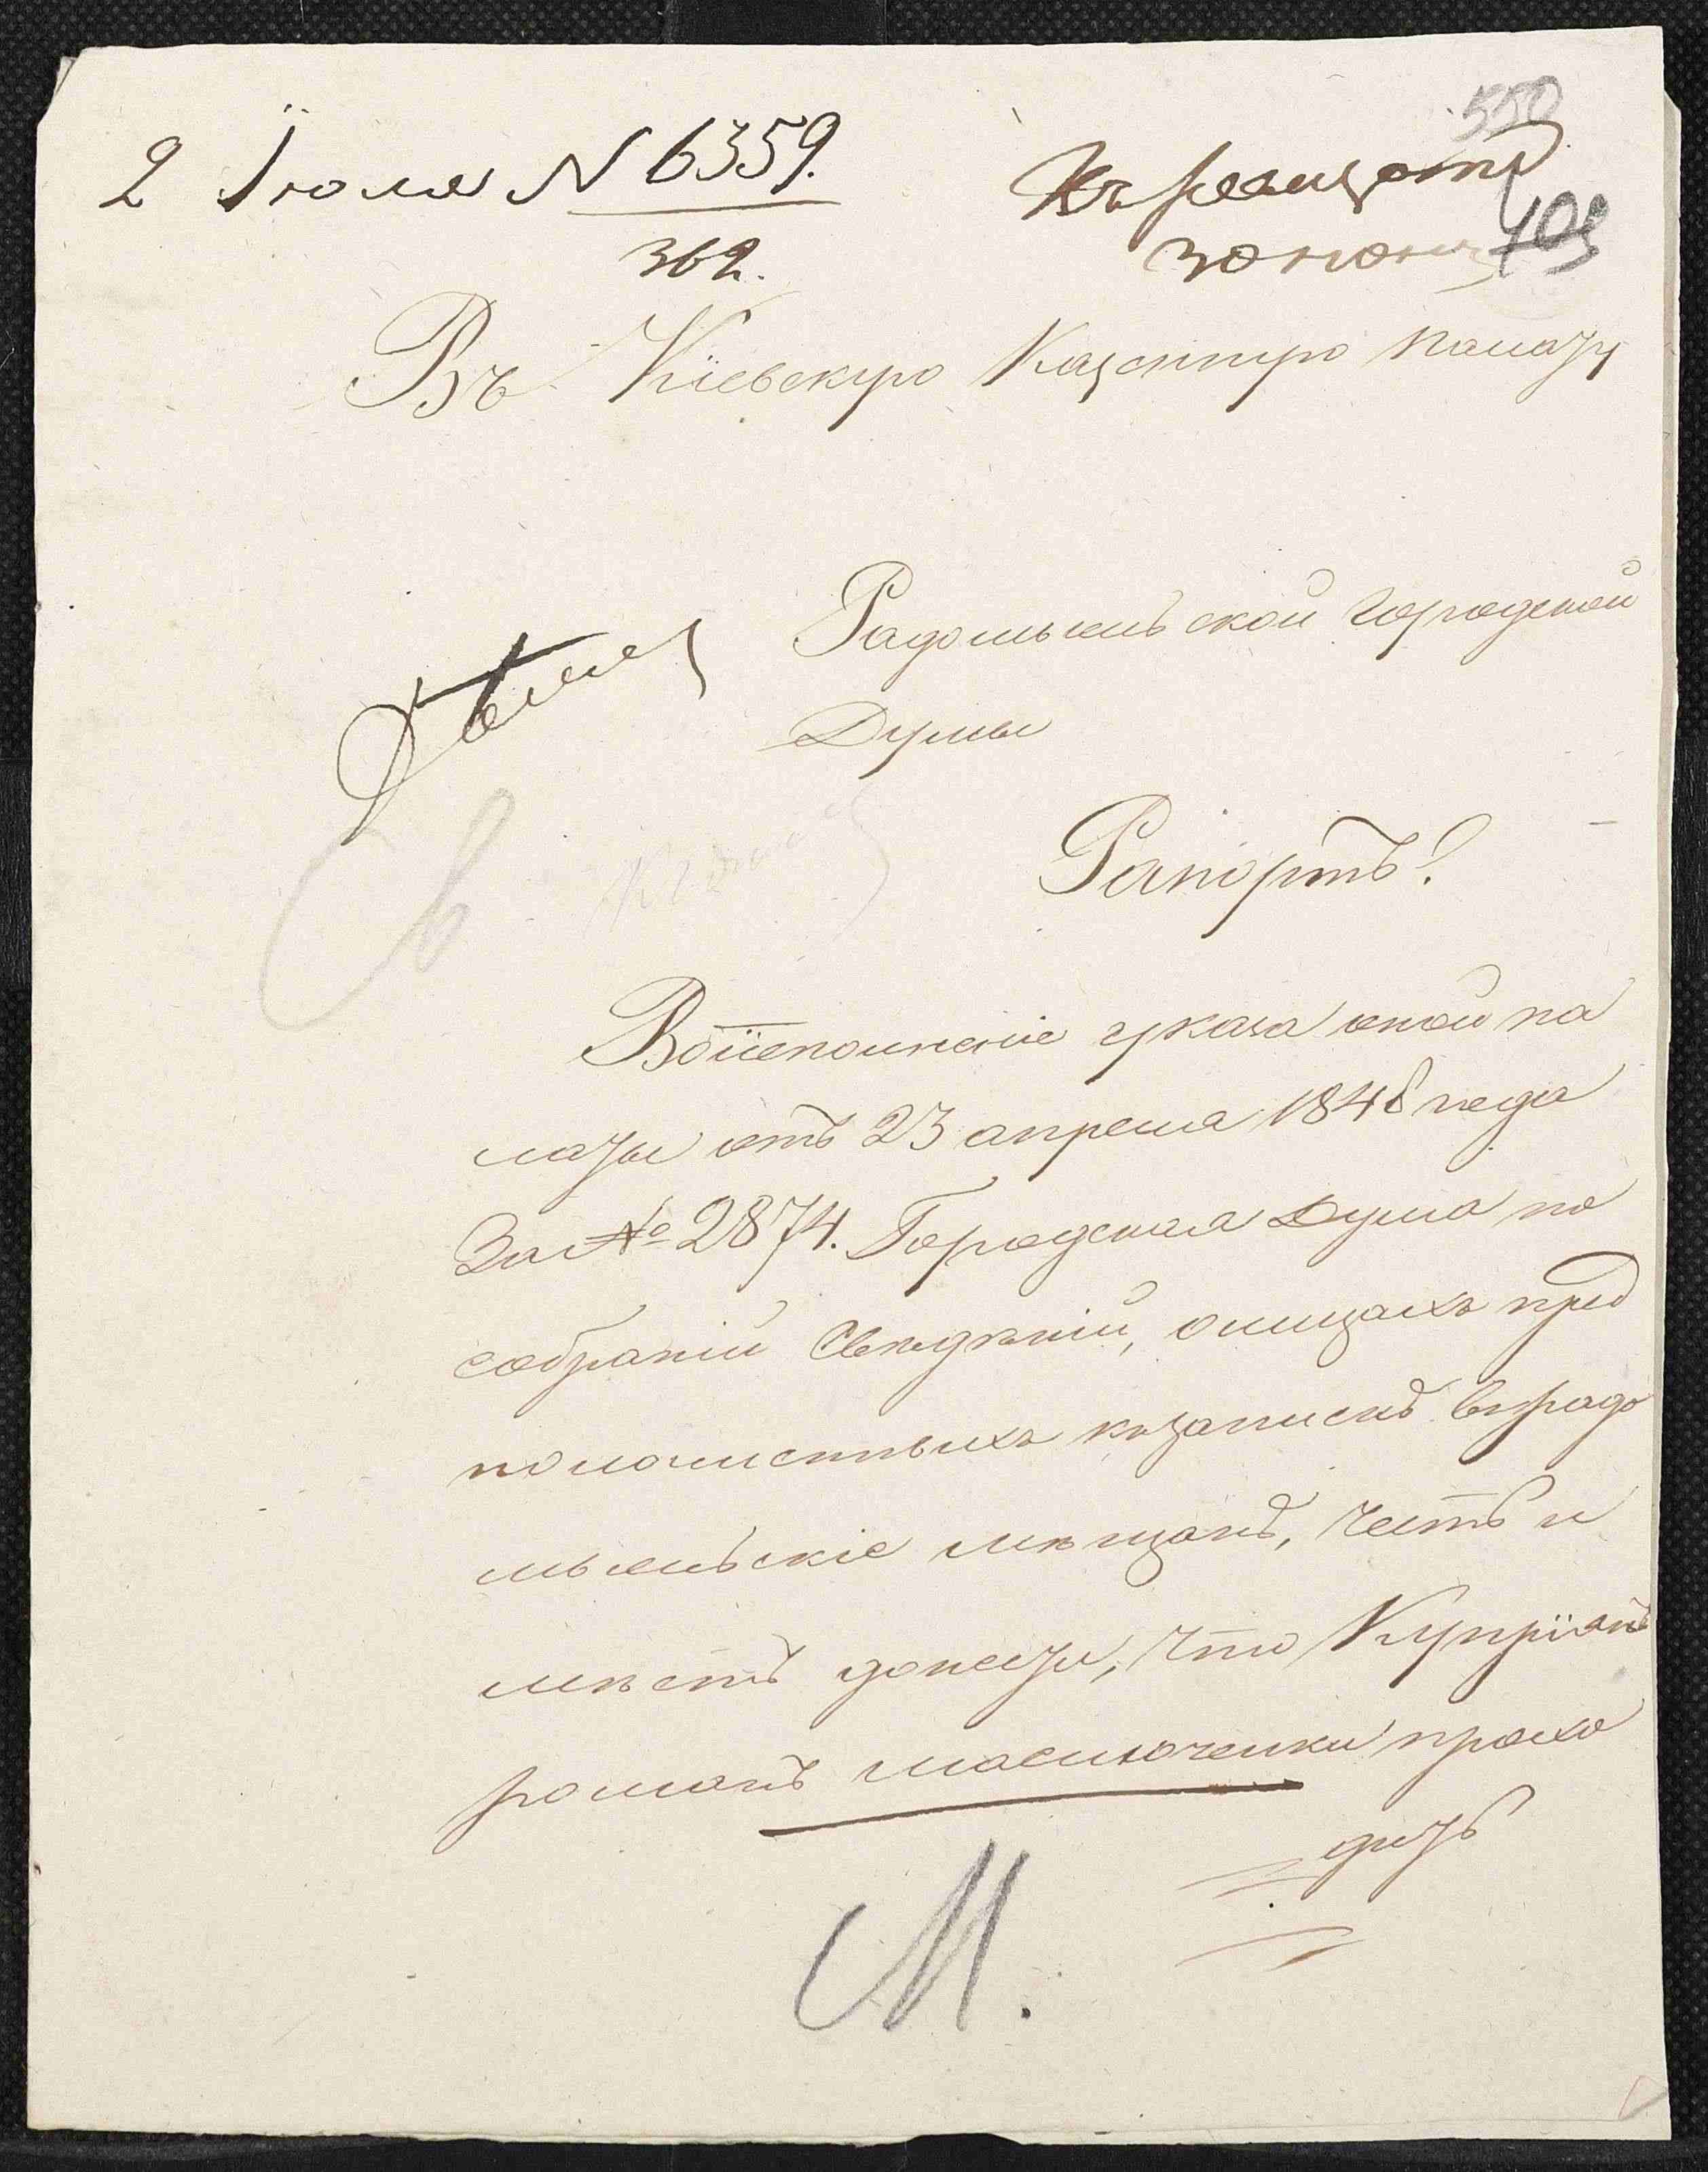 550
2 Іюля N 6359.
362.
Къ
30 июня
109
Въ Кіевскую Казенную Палату
Радомысльской Городской
Думы
Рапортъ!
Воисполненіе указа оной па
латы отъ 23 апреля 1848 года
За № 2874. Городская Дума по
собраніи Сведеній, олицахъ пред
положенныхъ кзаписке врадо
мысльскіе мещане, честь и
меетъ донести, что Купріянъ
романъ маслюченки прохо
дятъ
М.